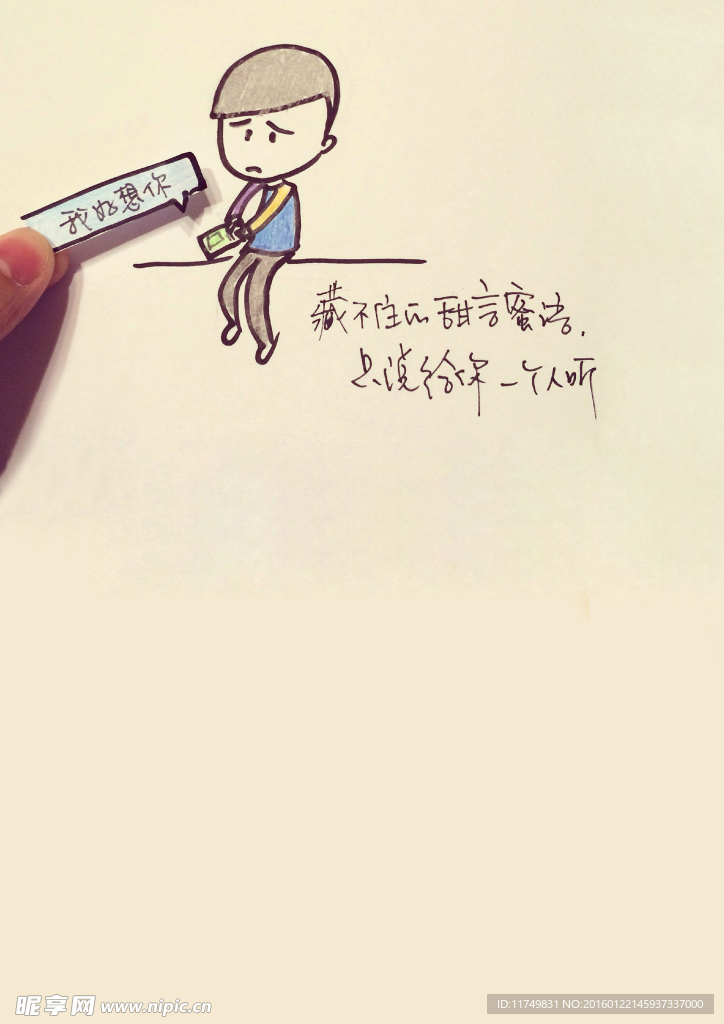 我好想你
藏不住的甜言蜜语,
只说给你一个人听
昵享网 www.nipic.cn
ID:11749831 NO:20160122145937337000